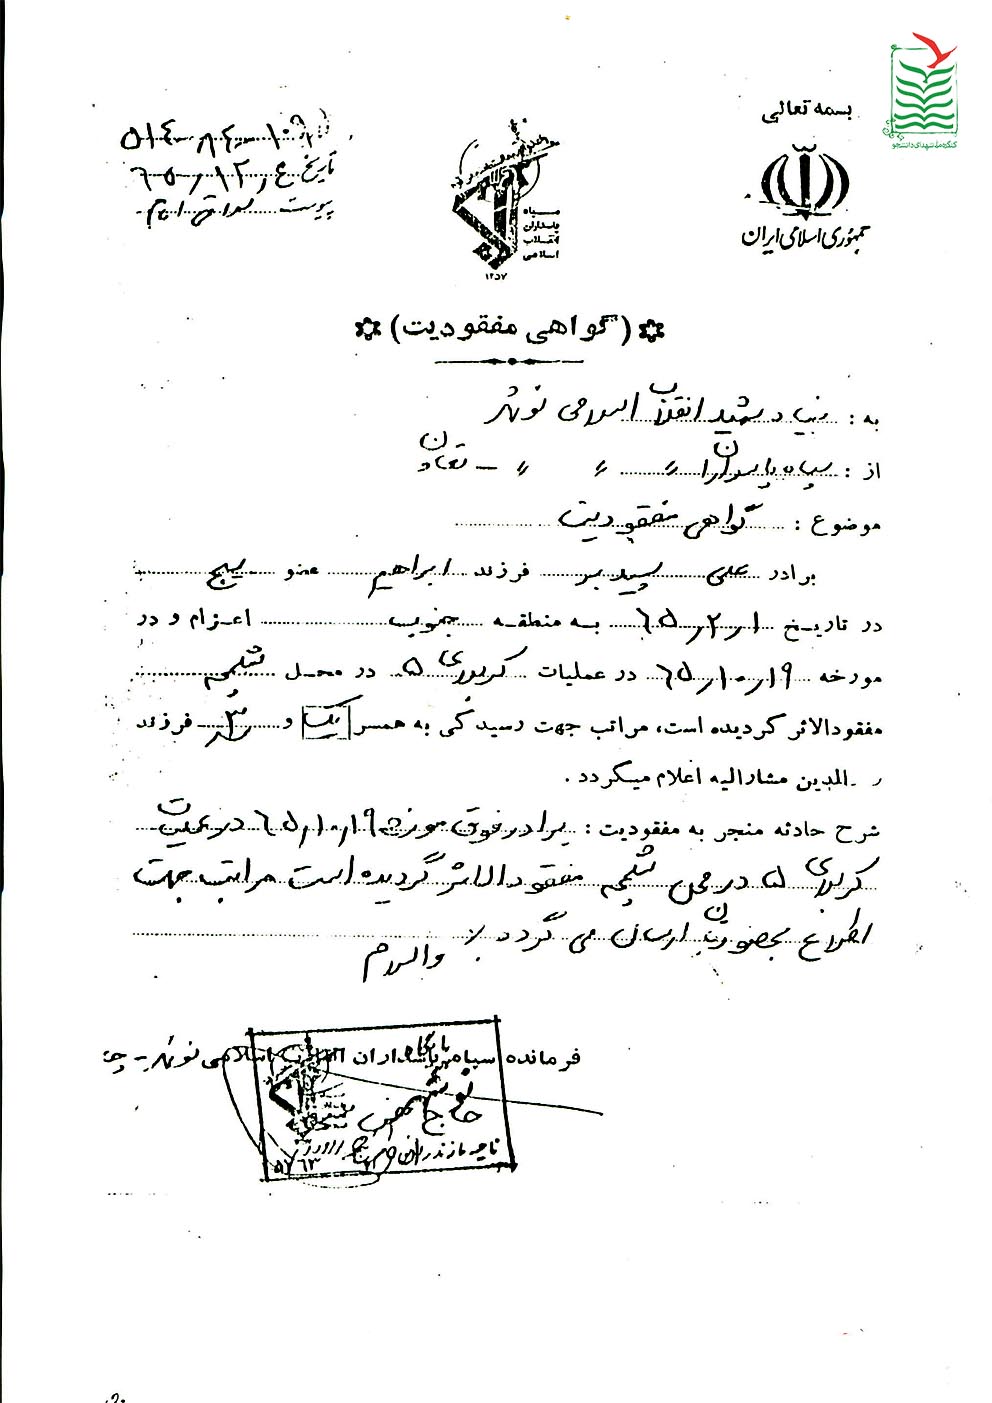 بسمه تعالی
کنگره ملی شهدای دانشجو
جمهوری اسلامی ایران
سپاه
پاسداران
انقلاب
اسلامی
۱۳۵۷
تاریخ ۶۵/۱۲/۴
پیوست
(گواهی مفقودیت)
به : بنیاد شهید انقلاب اسلامی نوشهر
از : سپاه پاسداران " " " - تعاون
موضوع : گواهی مفقودیت
برادر علی فرزند ابراهیم عضو بسیج
در تاریخ ۶۵/۲/۱ به منطقه جنوب اعزام و در
مورخه ۶۵/۱۰/۱۹ در عملیات کربلای ۵ در محل شلمچه
مفقودالاثر گردیده است، مراتب جهت رسیدگی به همسر یک و ۳ فرزند
والدین مشارالیه اعلام میگردد .
شرح حادثه منجر به مفقودیت : برادر فوق مورخه ۶۵/۱۰/۱۹ در عملیات
کربلای ۵ در محل شلمچه مفقودالاثر گردیده است مراتب جهت
اطلاع بحضورتان ارسال می گردد ./ والسلام
فرمانده سپاه پاسداران انقلاب اسلامی نوشهر
ناحیه مازندران